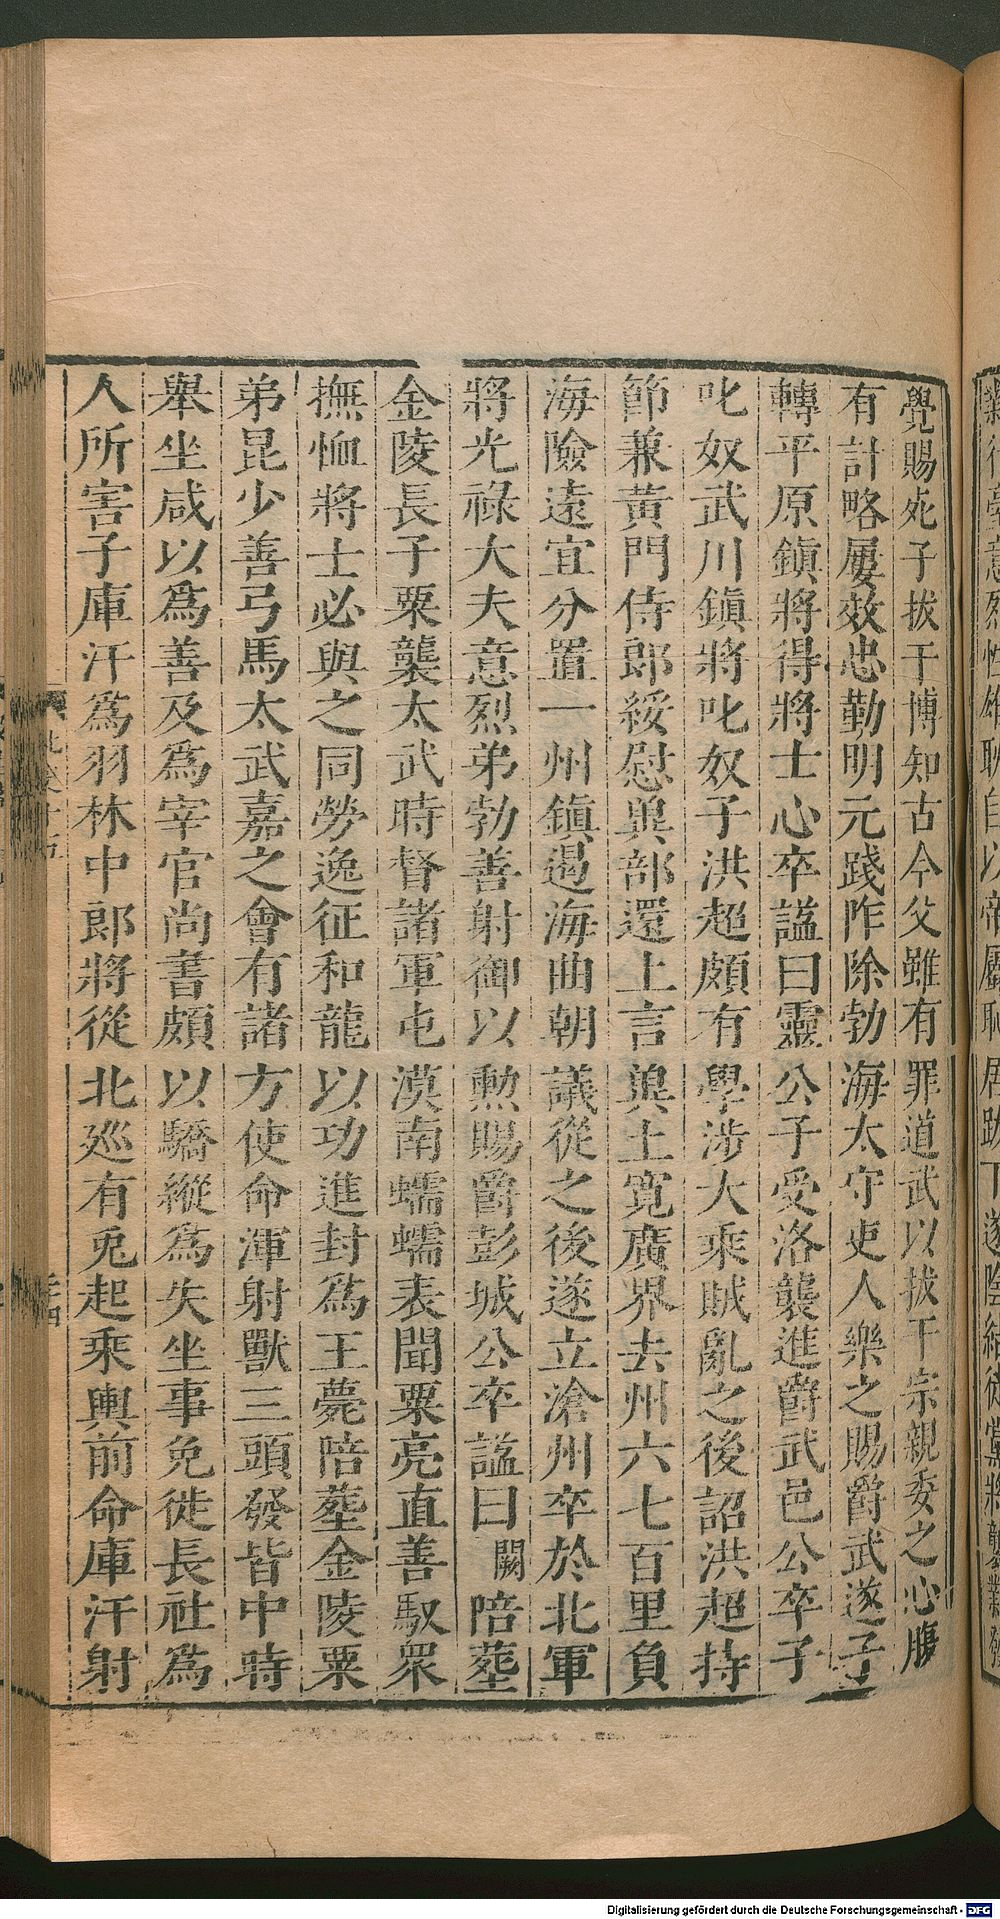 覺賜死子拔干博知古今父雖有罪道武以拔干宗親委之心腹
有計略屢效忠勤明元踐阼除勃海太守吏人樂之賜爵武遂子
轉平原鎮將得將士心卒謚曰靈公子受洛襲進爵武邑公卒子
叱奴武川鎮將叱奴子洪超頗有學涉大乘賊亂之後詔洪超持
節兼黃門侍郎綏慰兾部還上言兾土寬廣界去州六七百里負
海險遠宜分置一州鎮遏海曲朝議從之後遂立滄州卒於北軍
將光祿大夫意烈弟勃善射御以勲賜爵彭城公卒謚曰闕陪葬
金陵長子粟襲太武時督諸軍屯漠南蠕蠕表聞粟亮直善馭眾
撫恤將士必與之同勞逸征和龍以功進封爲王薨陪葬金陵粟
弟昆少善弓馬太武嘉之會有諸方使命渾射獸三頭發皆中時
舉坐咸以爲善及爲宰官尚書頗以驕縱爲失坐事免徙長社爲
人所害子庫汗爲羽林中郎將從北巡有兎起乘輿前命庫汗射
Digitalisierung gefördert durch die Deutsche Forschungsgemeinschaft - DFG